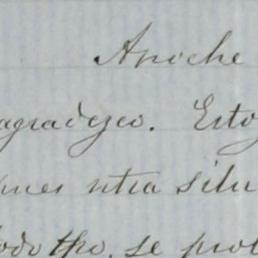 Anoche
agradezco. Estoy
pues ntra situ
todo tpo. se prol